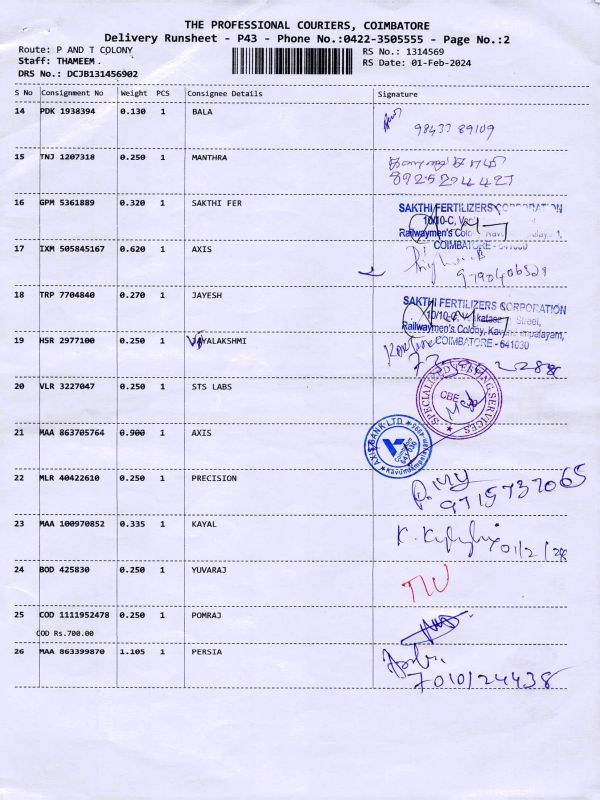 THE PROFESSIONAL COURIERS, COIMBATORE
Delivery Runsheet - P43 - Phone No.:0422-3505555 - Page No.:2
Route: P AND T COLONY
RS No.: 1314569
Staff: THAMEEM .
RS Date: 01-Feb-2024
DRS No.: DCJB131456902
S No Consignment No Weight PCS Consignee Details Signature
14 PDK 1938394 0.130 1 BALA
98437 89109
15 TNJ 1207318 0.250 1 MANTHRA
8925204427
16 GPM 5361889 0.320 1 SAKTHI FER
SAKTHI FERTILIZERS CORPORATION
10/10-C,
Railwaymen's Colony,
COIMBATORE - 641030
17 IXM 505845167 0.620 1 AXIS
18 TRP 7704840 0.270 1 JAYESH
SAKTHI FERTILIZERS CORPORATION
10/10-C, Venkatasamy Street,
Railwaymen's Colony, Kavundampalayam,
COIMBATORE - 641030
19 HSR 2977100 0.250 1 VIJAYALAKSHMI
20 VLR 3227047 0.250 1 STS LABS
SPECIALIZED TESTING SERVICES
CBE
21 MAA 863705764 0.900 1 AXIS
AXIS BANK LTD
Coimbatore
22 MLR 40422610 0.250 1 PRECISION
9715737065
23 MAA 100970852 0.335 1 KAYAL
01/2/24
24 BOD 425830 0.250 1 YUVARAJ
25 COD 1111952478 0.250 1 POMRAJ
COD Rs.700.00
26 MAA 863399870 1.105 1 PERSIA
7010124438